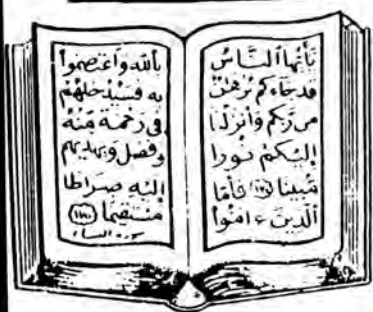 يَٰأَيُّهَا ٱلنَّاسُ
قَدْ جَاءَكُم بُرْهَٰنٌ
مِّن رَّبِّكُمْ وَأَنزَلْنَا
إِلَيْكُمْ نُورًا
مُّبِينًا فَأَمَّا
ٱلَّذِينَ ءَامَنُوا۟
بِٱللَّهِ وَٱعْتَصَمُوا۟
بِهِ فَسَيُدْخِلُهُمْ
فِى رَحْمَةٍ مِّنْهُ
وَفَضْلٍ وَيَهْدِيهِمْ
إِلَيْهِ صِرَاطًا
مُّسْتَقِيمًا
سورة النساء